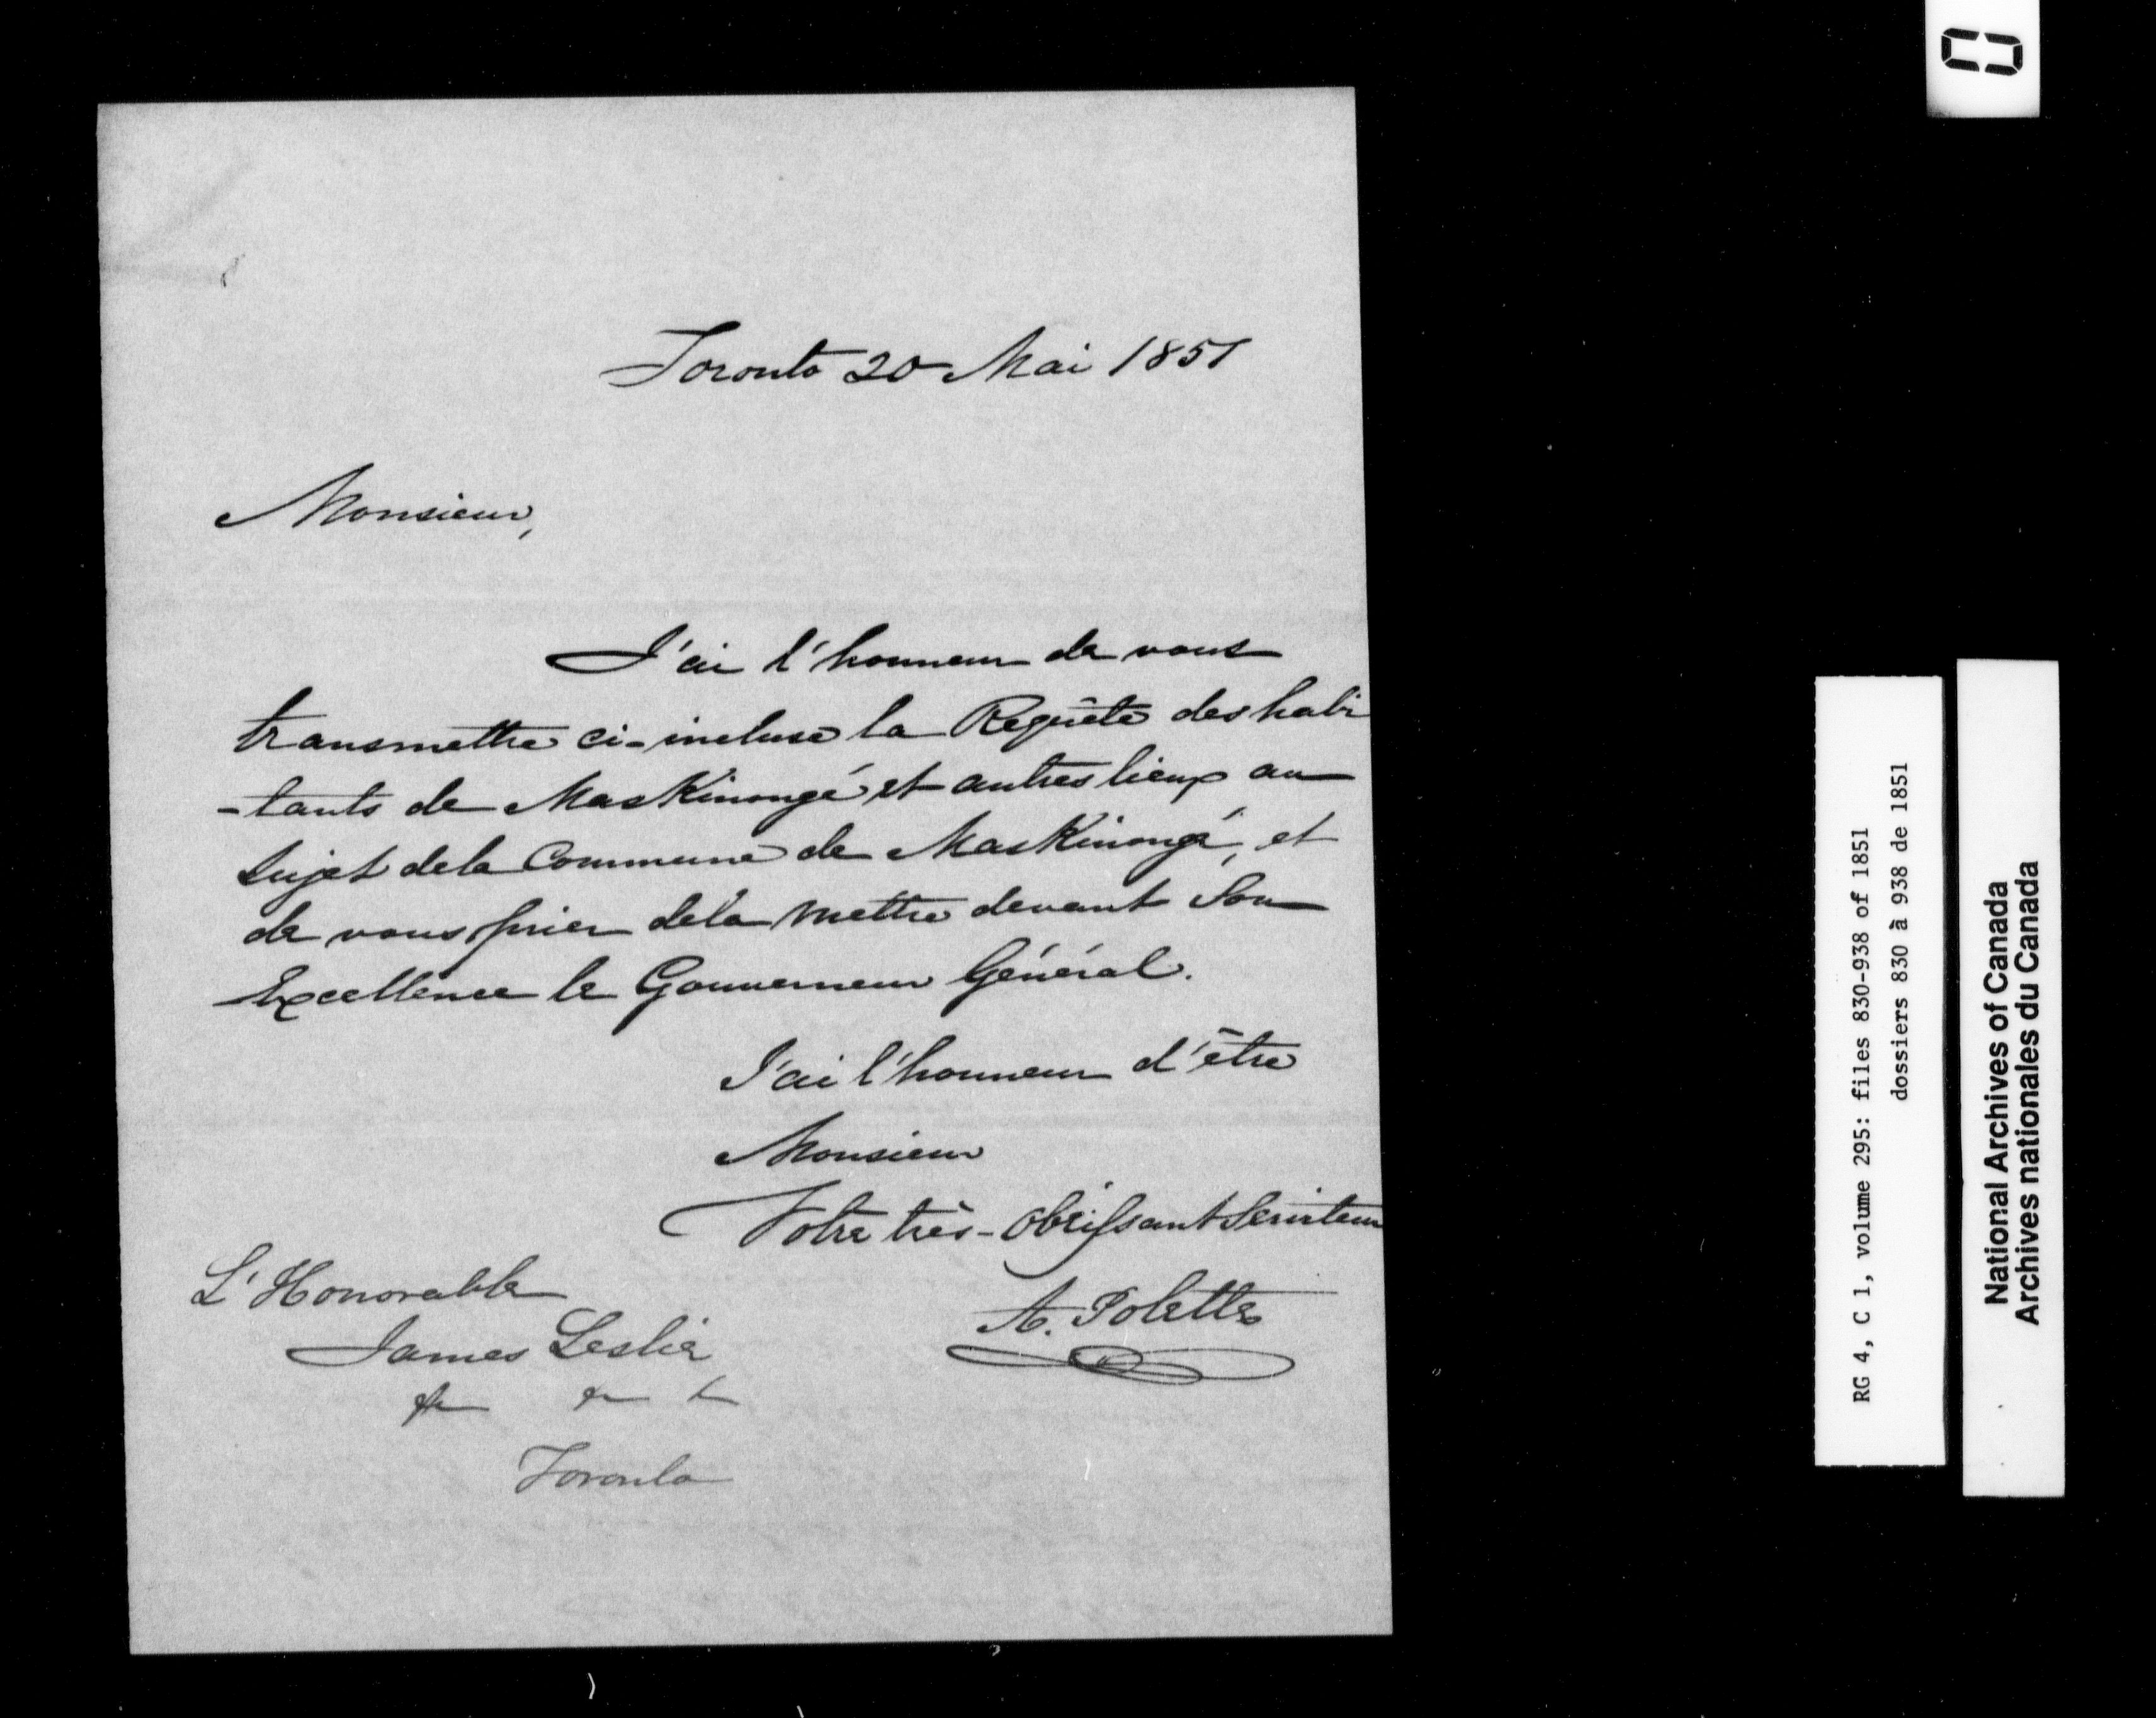 Toronto 20 Mai 1851
Monsieur,
J'ai l'honneur de vous
transmettre ci-incluse la Requête des habi
-tants de Maskinongé et autres lieux au
sujet de la Commune de Maskinongé, et
de vous prier de la mettre devant Son
Excellence le Gouverneur Général.
J'ai l'honneur d'être
Monsieur
Votre très-obéissant Serviteur
A. Polette
L'Honorable
James Leslie
Toronto
RG 4, C 1, volume 295: files 830-938 of 1851
dossiers 830 à 938 de 1851
National Archives of Canada
Archives nationales du Canada